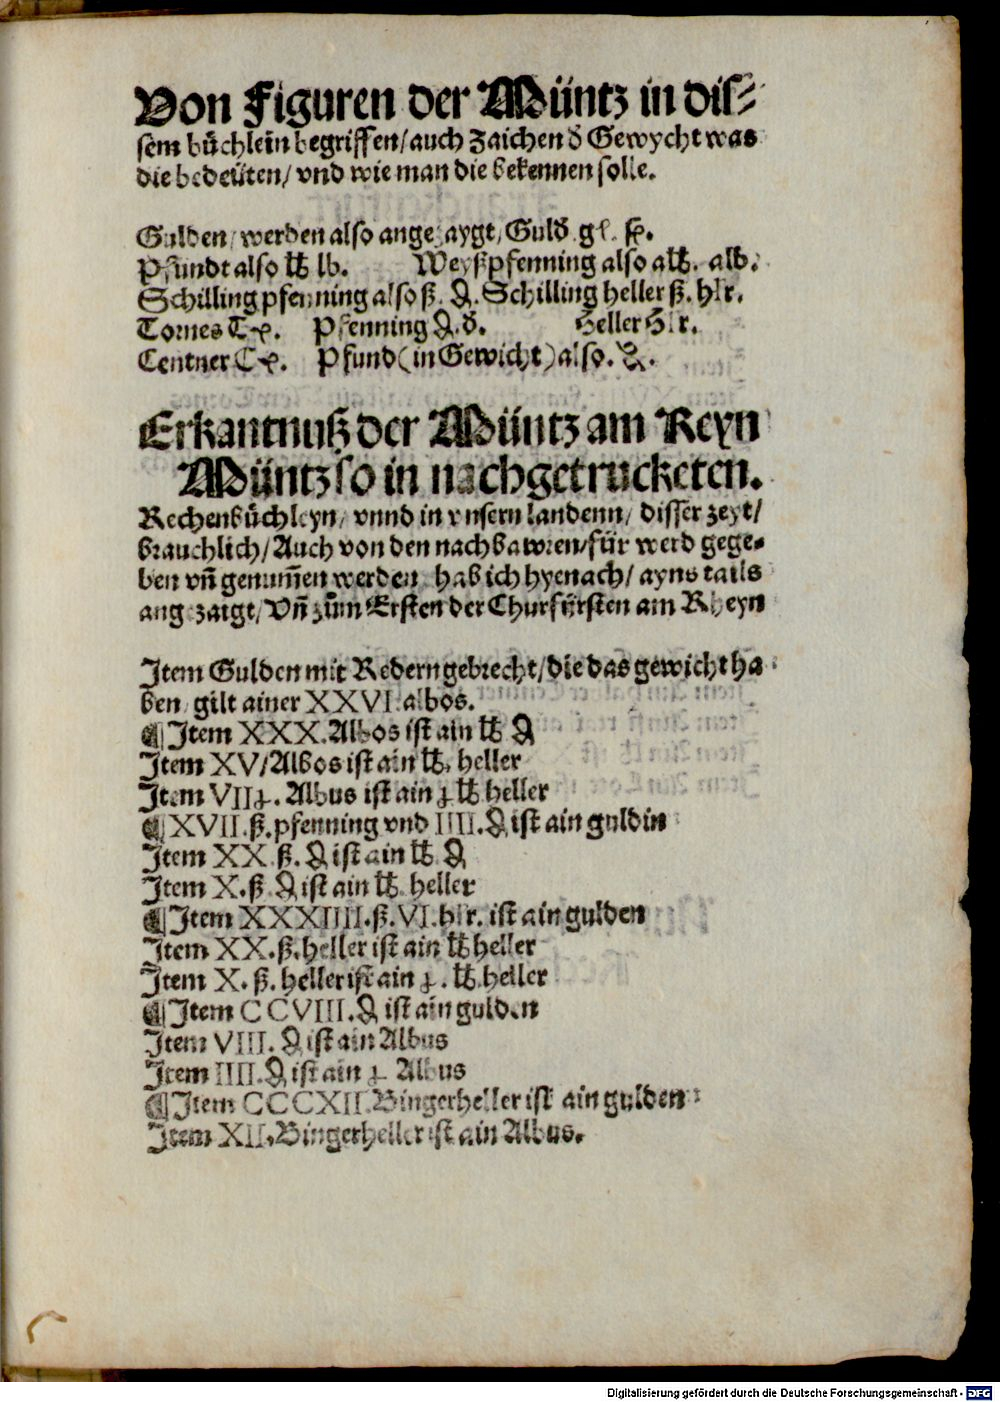 Von Figuren der Müntz in dis⸗
sem bůchlein begriffen/auch Zaichen d̄ Gewycht was
die bedeüten/ vnd wie man die bekennen solle.
Gulden/ werden also angezaygt, Guld̄ gl. fl.
Pfundt also ℔ lb. Weyßpfenning also al℔. alb.
Schilling pfenning also ß. ₰. Schilling heller ß. hlr.
Tornes Tꝛ. Pfenning ₰. d̄. Heller Hlr.
Centner Cꝛ. Pfund (in Gewicht) also.
Erkantnuß der Müntz am Reyn
Müntz so in nachgetrucketen.
Rechenbůchleyn/ vnnd in vnsern landenn/ disser zeyt/
brauchlich/ Auch von den nachbawren/für werd gege⸗
ben vñ genum̄en werden/ hab ich hyenach/ ayns tails
angezaigt/ Vñ zům Ersten der Churfürsten am Rheyn
Item Gulden mit Redern gebrecht/die das gewicht ha⸗
ben/ gilt ainer XXVI albos.
¶ Item XXX. Albos ist ain ℔ ₰
Item XV/Albos ist ain ℔. heller
Item VIIɟ. Albus ist ain ɟ ℔ heller
¶ XVII. ß. pfenning vnd IIII. ₰ ist ain guldin
Item XX ß. ₰ ist ain ℔ ₰
Item X. ß ₰ ist ain ℔ heller
¶ Item XXXIIII. ß. VI. hlr. ist ain gulden
Item XX. ß. heller ist ain ℔ heller
Item X. ß. heller ist ain ɟ. ℔. heller
¶ Item CCVIII. ₰ ist ain gulden
Item VIII. ₰ ist ain Albus
Item IIII. ₰ ist ain ɟ Albus
¶ Item CCCXII. Bingerheller ist ain gulden
Item XII. Bingerheller ist ain Albus.
Digitalisierung gefördert durch die Deutsche Forschungsgemeinschaft - DFG